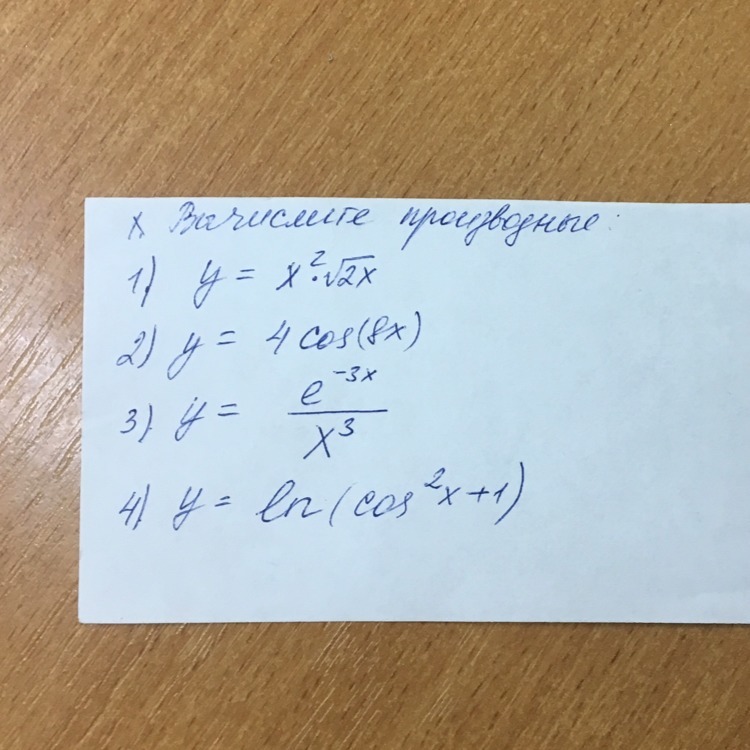 x Вычислите производные:
1) y = x²·√2x
2) y = 4 cos(8x)
3) y = e⁻³ˣ / x³
4) y = ln(cos²x+1)